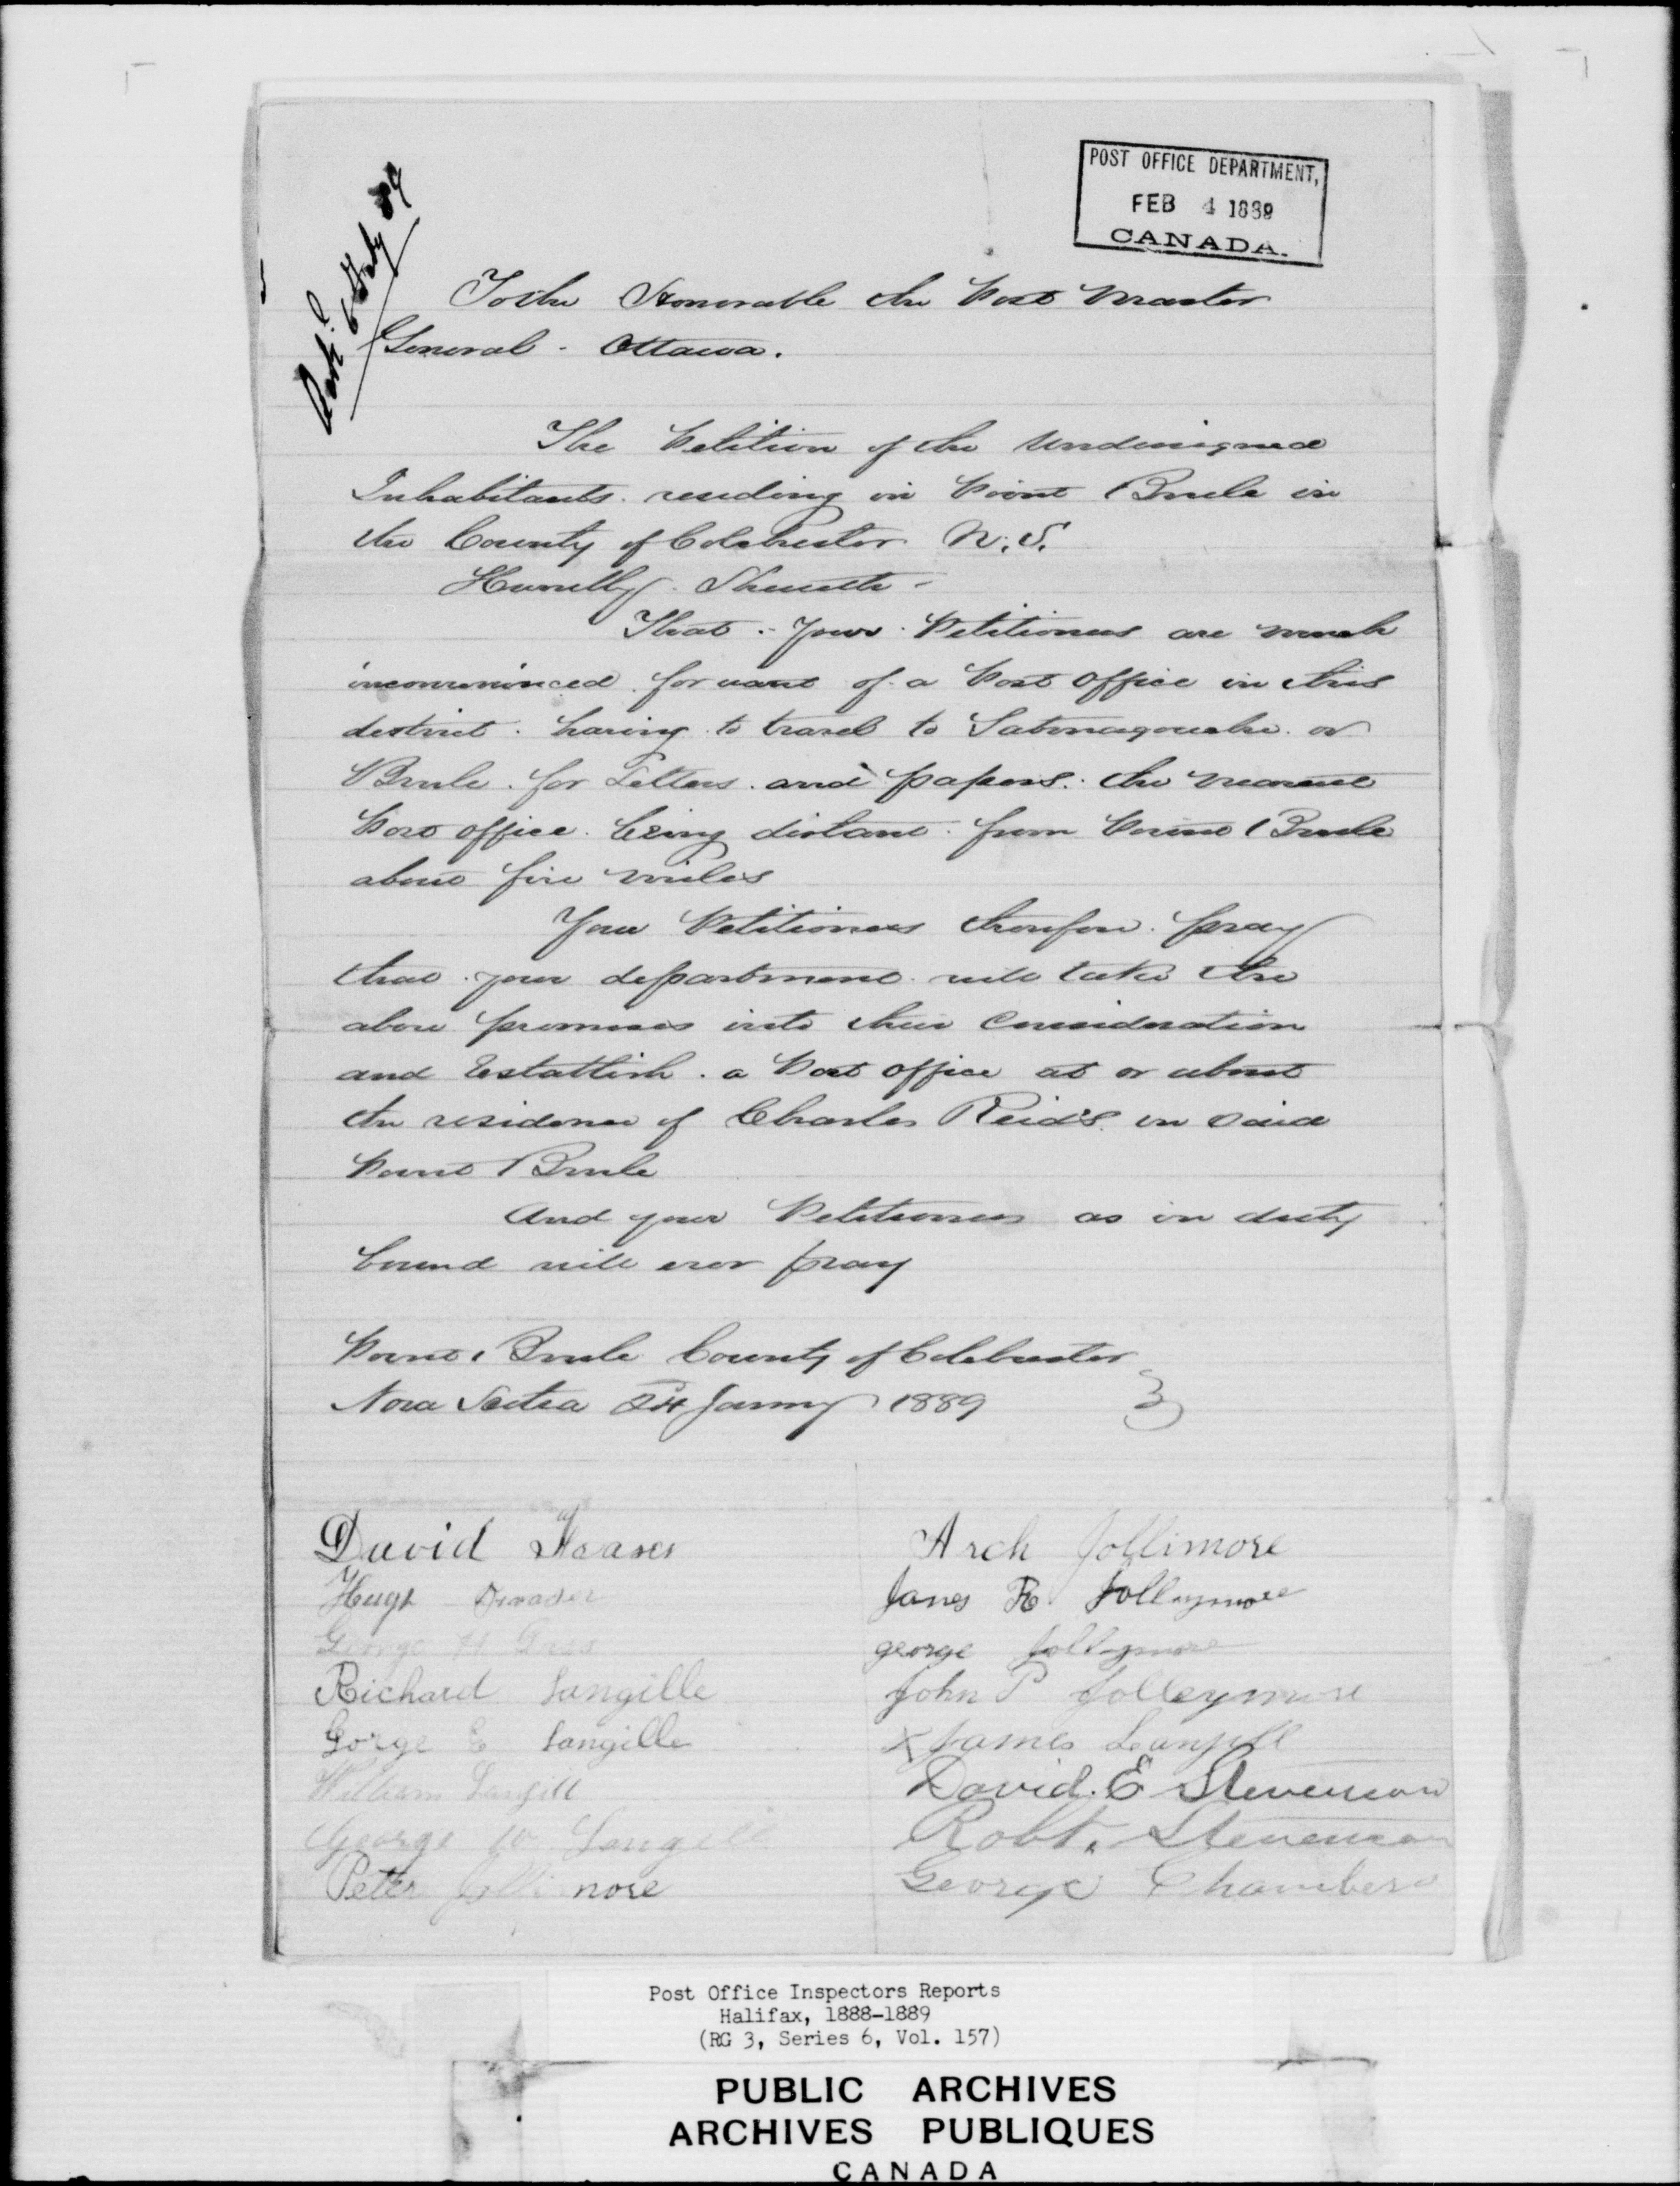 POST OFFICE DEPARTMENT,
FEB 4 1889
CANADA.
6 Feby 89
To the Honorable the Post Master
General - Ottawa.
The Petition of the Undersigned
Inhabitants residing in Point Brule in
the County of Colchester N.S.
Humbly Sheweth -
That your Petitioners are much
inconvenienced for want of a Post Office in this
district having to travel to Tatamagouche or
Brule for Letters and papers. the nearest
Post office being distant from Point Brule
about five miles
Your Petitioners therefore pray
that your department will take the
above premises into their Consideration
and Establish a Post Office at or about
the residence of Charles Reid's in said
Point Brule
And your Petitioners as in duty
bound will ever pray
Point Brule County of Colchester
Nova Scotia 24 January 1889
David Fraser
Hugh
George H
Richard Langille
Gorge E Langille
William Langill
George W Langill
Peter Jollimore
Arch Jollimore
James R Jolleymore
george Jolleymore
John P Jolleymore
X James Langill
David. E Stevenson
Robt. Stevenson
George Chambers
Post Office Inspectors Reports
Halifax, 1888-1889
(RG 3, Series 6, Vol. 157)
PUBLIC ARCHIVES
ARCHIVES PUBLIQUES
CANADA